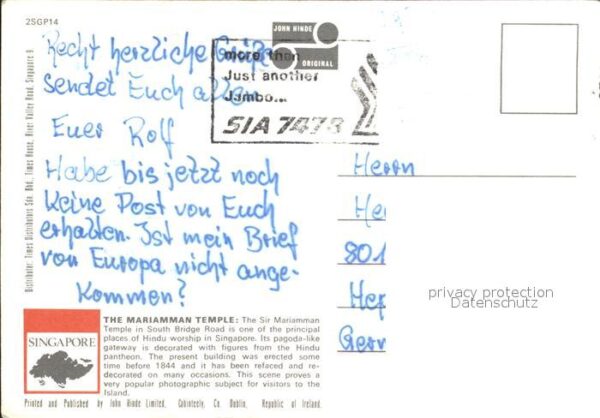 2SGP14
JOHN HINDE
ORIGINAL
more than
Just another
Jumbo...
SIA 747B
Recht herzliche Grüße
sendet Euch allen
Euer Rolf
Habe bis jetzt noch
keine Post von Euch
erhalten. Ist mein Brief
von Europa nicht ange-
kommen?
Herrn
He
801
Hep
Germ
privacy protection
Datenschutz
Distributor: Times Distributors Sdn. Bhd., Times House, River Valley Road, Singapore 9.
SINGAPORE
THE MARIAMMAN TEMPLE: The Sir Mariamman
Temple in South Bridge Road is one of the principal
places of Hindu worship in Singapore. Its pagoda-like
gateway is decorated with figures from the Hindu
pantheon. The present building was erected some
time before 1844 and it has been refaced and re-
decorated on many occasions. This scene proves a
very popular photographic subject for visitors to the
Island.
Printed and Published by John Hinde Limited, Cabinteely, Co. Dublin, Republic of Ireland.